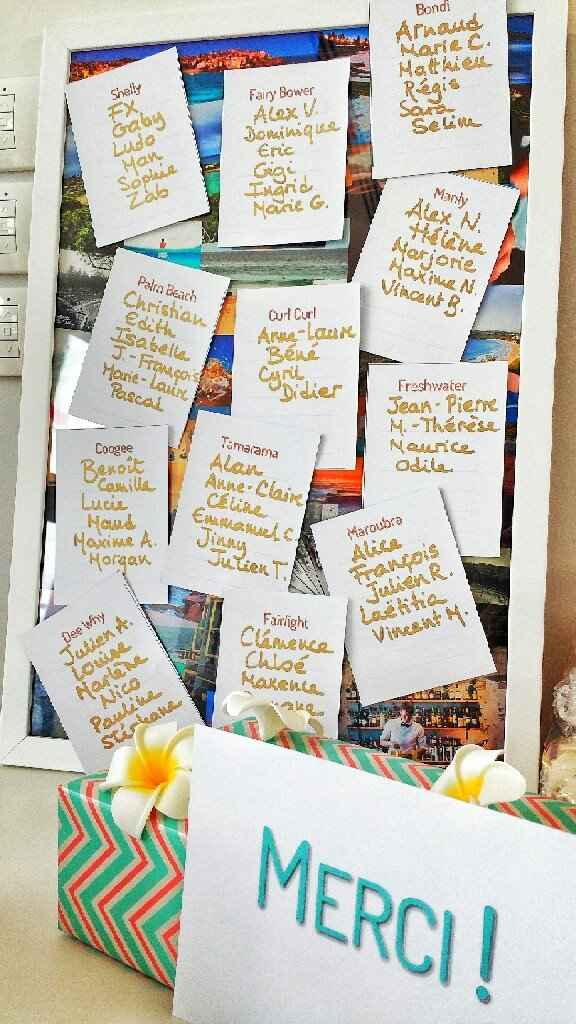 Bondi
Arnaud
Marie C.
Matthieu
Régis
Sara
Selim
Shelly
FX
Gaby
Ludo
Man
Sophie
Zab
Fairy Bower
Alex V.
Dominique
Eric
Gigi
Ingrid
Marie G.
Manly
Alex N.
Hélène
Marjorie
Maxime N.
Vincent B.
Palm Beach
Christian
Edith
Isabelle
J.-François
Marie-Laure
Pascal
Curl Curl
Anne-Laure
Béné
Cyril
Didier
Freshwater
Jean-Pierre
M.-Thérèse
Maurice
Odile
Coogee
Benoît
Camille
Lucie
Maud
Maxime A.
Morgan
Tamarama
Alan
Anne-Claire
Céline
Emmanuel C.
Jinny
Julien T.
Maroubra
Alice
François
Julien R.
Laëtitia
Vincent M.
Dee Why
Julien A.
Louise
Marlène
Nico
Pauline
Stéphane
Fairlight
Clémence
Chloé
Maxence
MERCI!